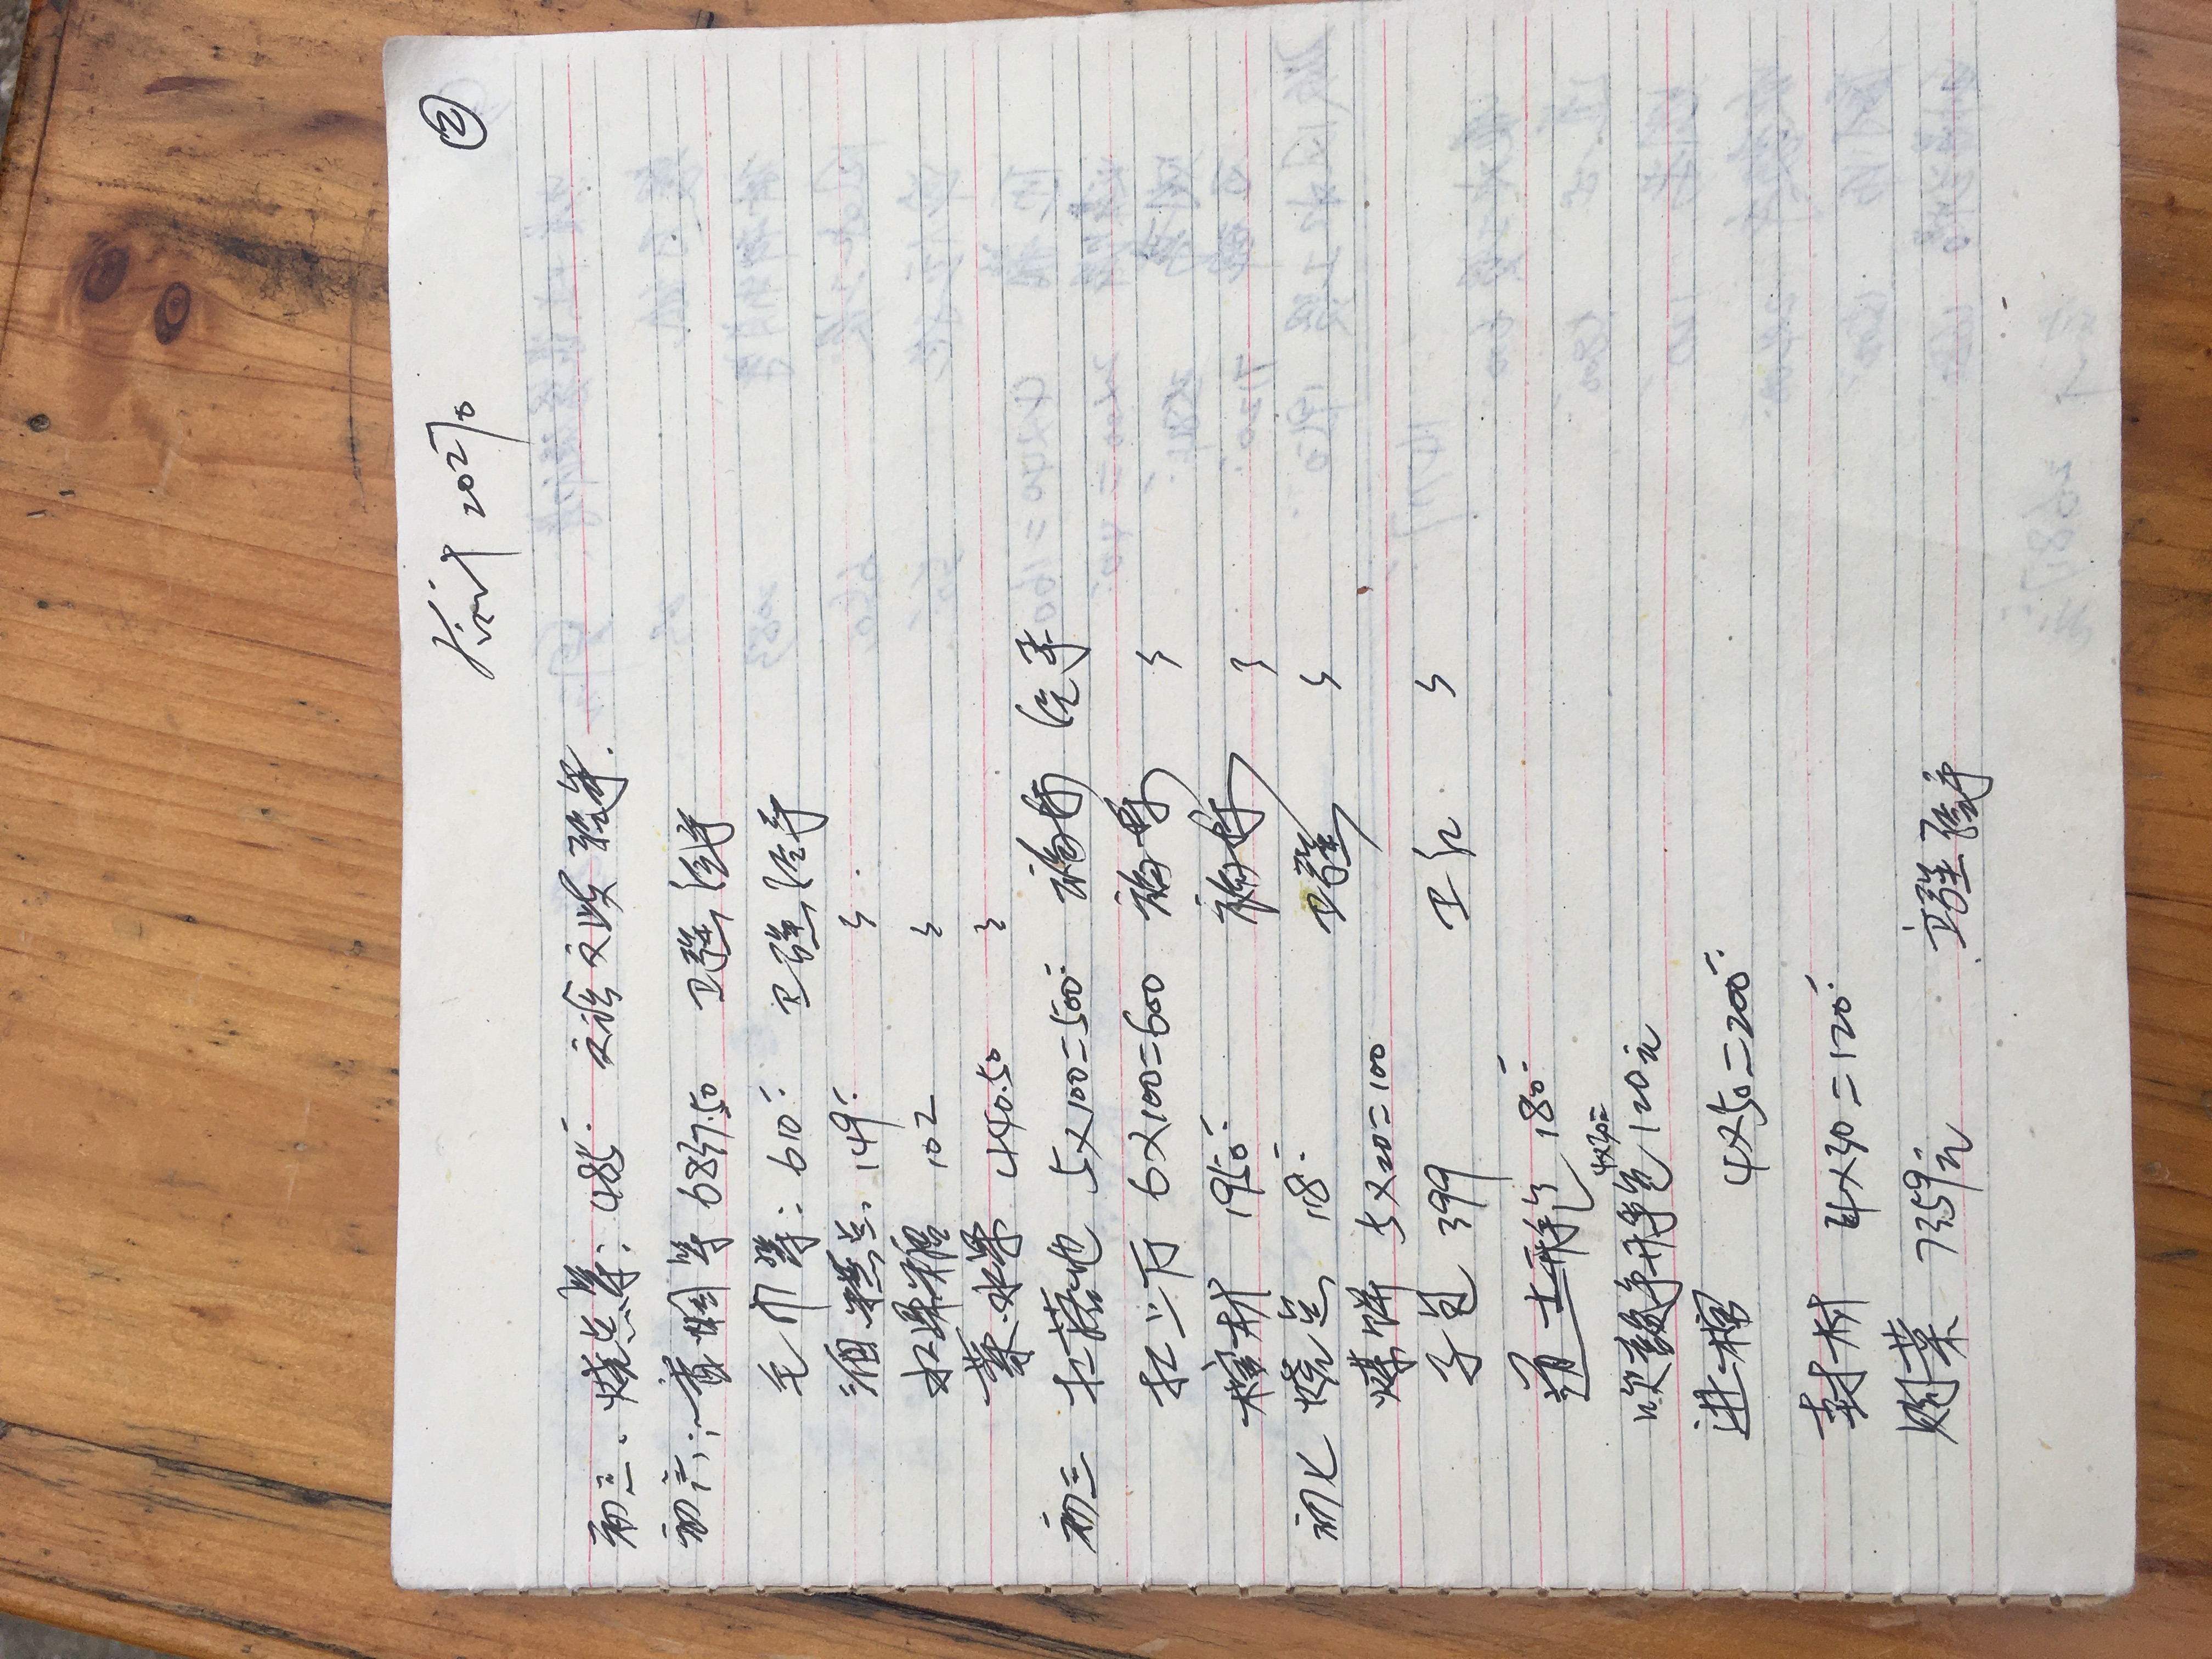 合计 20270 ②
初三、烧点等: 485 文 文 经手.
初六: 黄烟等 6837.50 卫强 经手
毛巾等: 610 卫强 经手
酒.糕点 149 〃
水果糖 102 〃
菜.水果 440.50 〃
初三 扛落地 5×100=500 经手
扛上厅 6×100=600 〃
棺材 1950 〃
初七 烧点 118 卫强 〃
煤饼 5×20=100
子包 399 卫红 〃
道士形包 180
4×30=
吹鼓手形包 120元
进棺 4×50=200
封材 4×30=120
购菜 7359元 卫强 经手